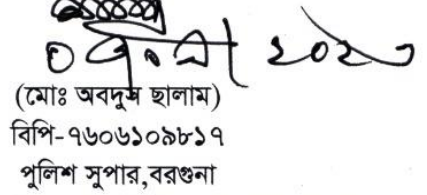 (মোঃ অবদুস ছালাম)
বিপি-৭৬০৬১০৯৮১৭
পুলিশ সুপার,বরগুনা